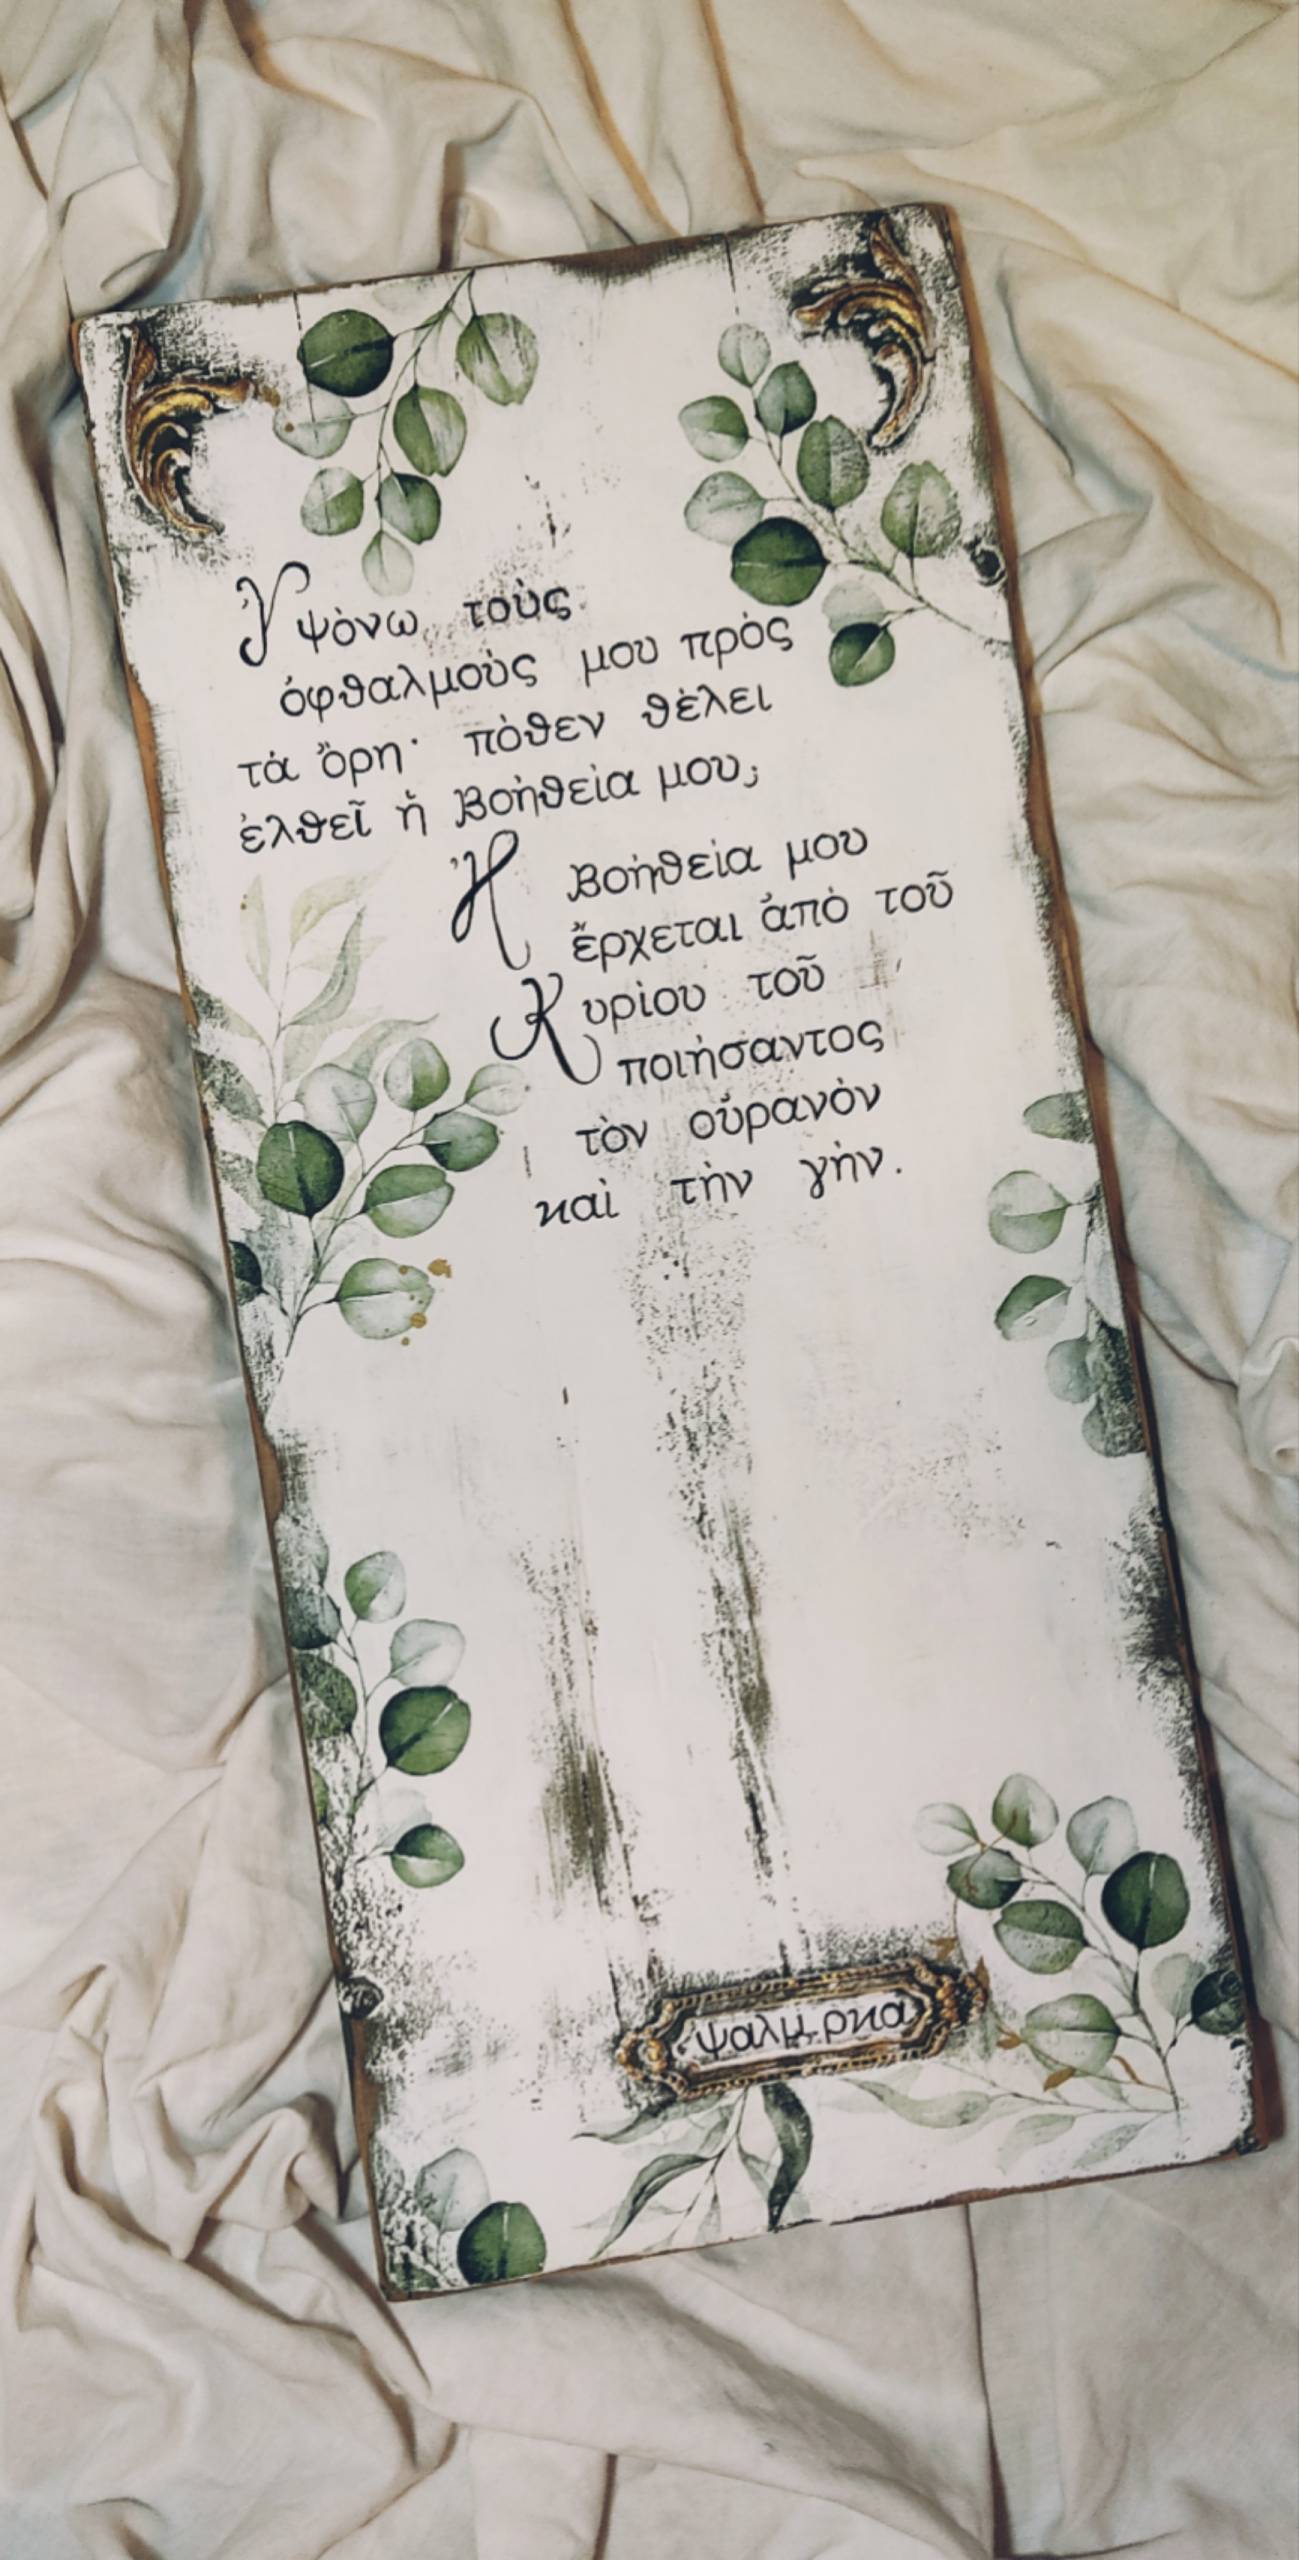 Ὑψόνω τοὺς
ὀφθαλμοὺς μου πρὸς
τὰ ὄρη· πόθεν θέλει
ἐλθεῖ ἡ βοήθεία μου;
Ἡ βοήθεία μου
ἔρχεται ἀπὸ τοῦ
Κυρίου τοῦ
ποιήσαντος
τὸν οὐρανὸν
καὶ τὴν γὴν.
ψαλμ. ρκα